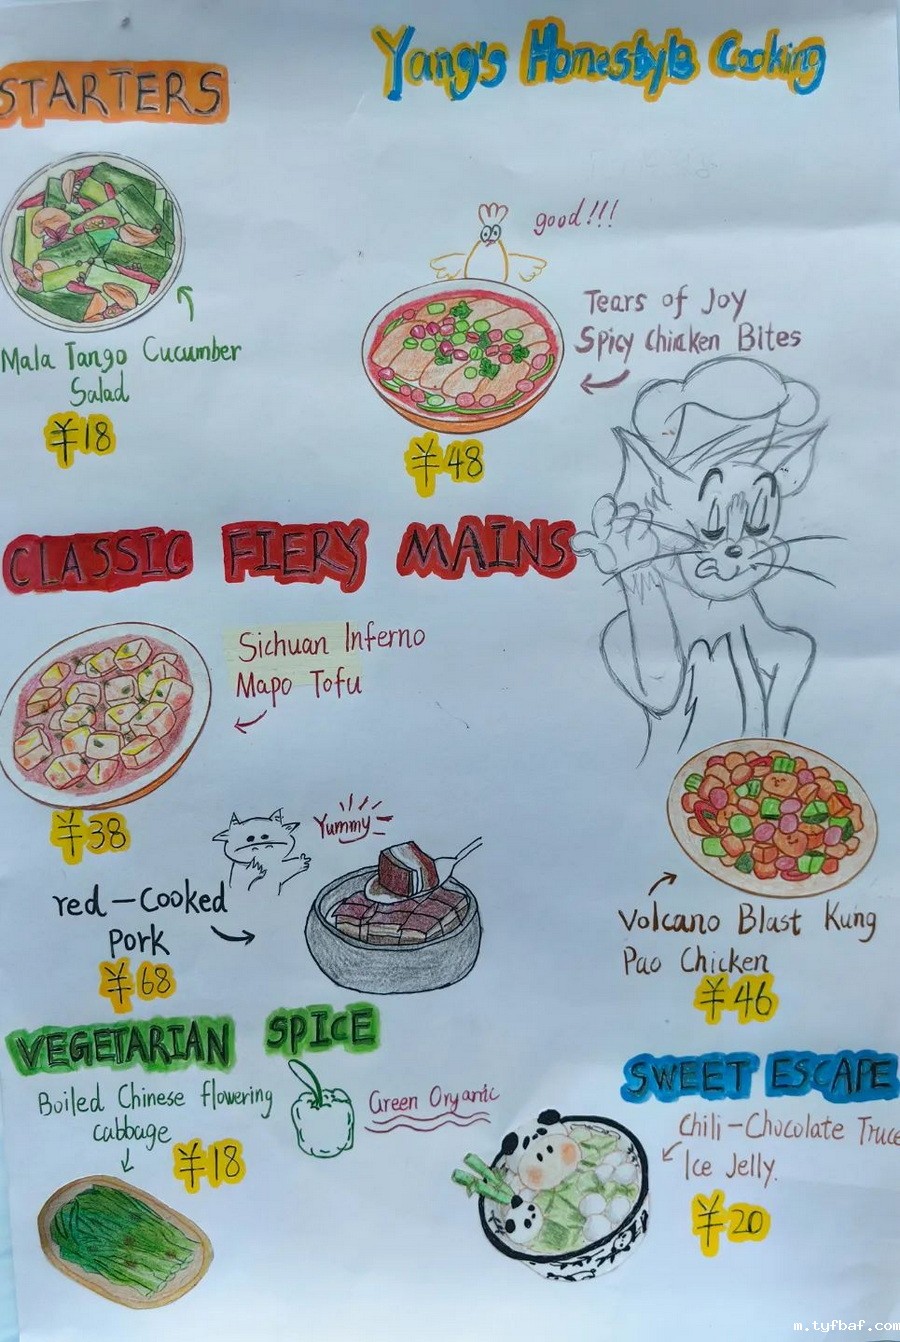 Yang's Homestyle Cooking
STARTERS
good!!!
Tears of Joy
Spicy Chicken Bites
¥48
Mala Tango Cucumber
Salad
¥18
CLASSIC FIERY MAINS
Sichuan Inferno
Mapo Tofu
¥38
Yummy
red-Cooked
Pork
¥68
Volcano Blast Kung
Pao Chicken
¥46
VEGETARIAN SPICE
Boiled Chinese flowering
cabbage
¥18
Green Organic
SWEET ESCAPE
Chili-Chocolate Truce
Ice Jelly.
¥20
m.tyfbaf.com